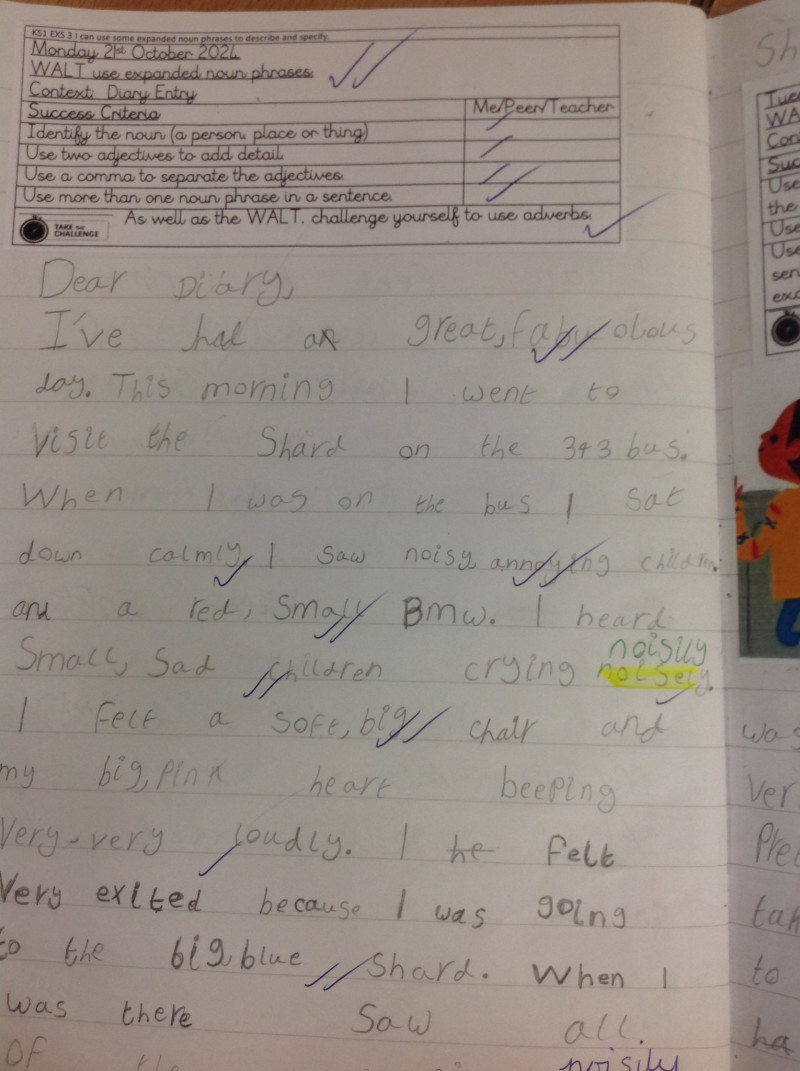 KS1 EXS 3 I can use some expanded noun phrases to describe and specify.
Monday 21st October 2024
WALT use expanded noun phrases.
Context: Diary Entry
Success Criteria Me/Peer/Teacher
Identify the noun (a person, place or thing)
Use two adjectives to add detail
Use a comma to separate the adjectives.
Use more than one noun phrase in a sentence.
TAKE THE CHALLENGE As well as the WALT, challenge yourself to use adverbs.
Dear Diary,
I've had a great, fabuolous
day. This morning I went to
visit the Shard on the 343 bus.
When I was on the bus I sat
down calmly, I saw noisy, annoying children
and a red, small Bmw. I heard
Small, sad children crying noisely.
noisily
I felt a soft, big chair and
my big, pink heart beeping
Very-very loudly. I he felt
Very exited because I was going
to the big, blue Shard. When I
was there saw all.
OF
noisily
Sh
Tues
WA
Con
Suc
Use
the
Use
Use
sen
exc
was
Ver
Pre
tak
to
ha